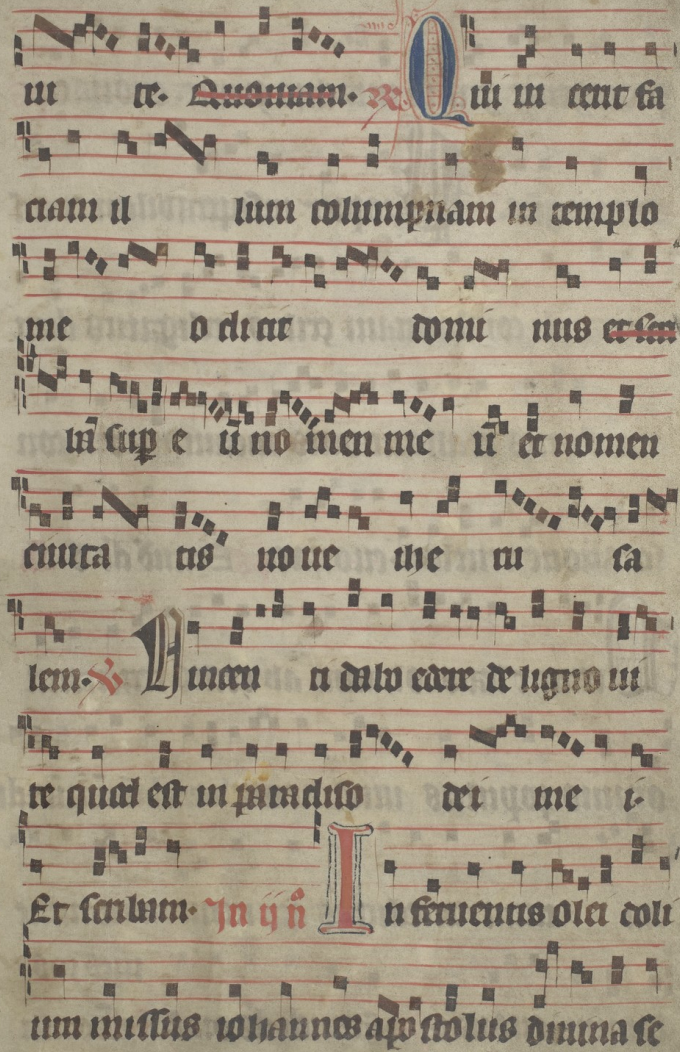 ui te. Quoniam. R Qui ui cerit fa
ciam il lum columpnam in templo
me o dicit domi nus et scri
ba sup e ū no men me ū et nomen
ciuita tis no ue ihe ru sa
lem. V Vincen ti dabo edere de ligno ui
te quod est in paradiso dei me i.
Et scribam. In ij n̊ In feruentis olei doli
um missus iohannes apo stolus diuina se